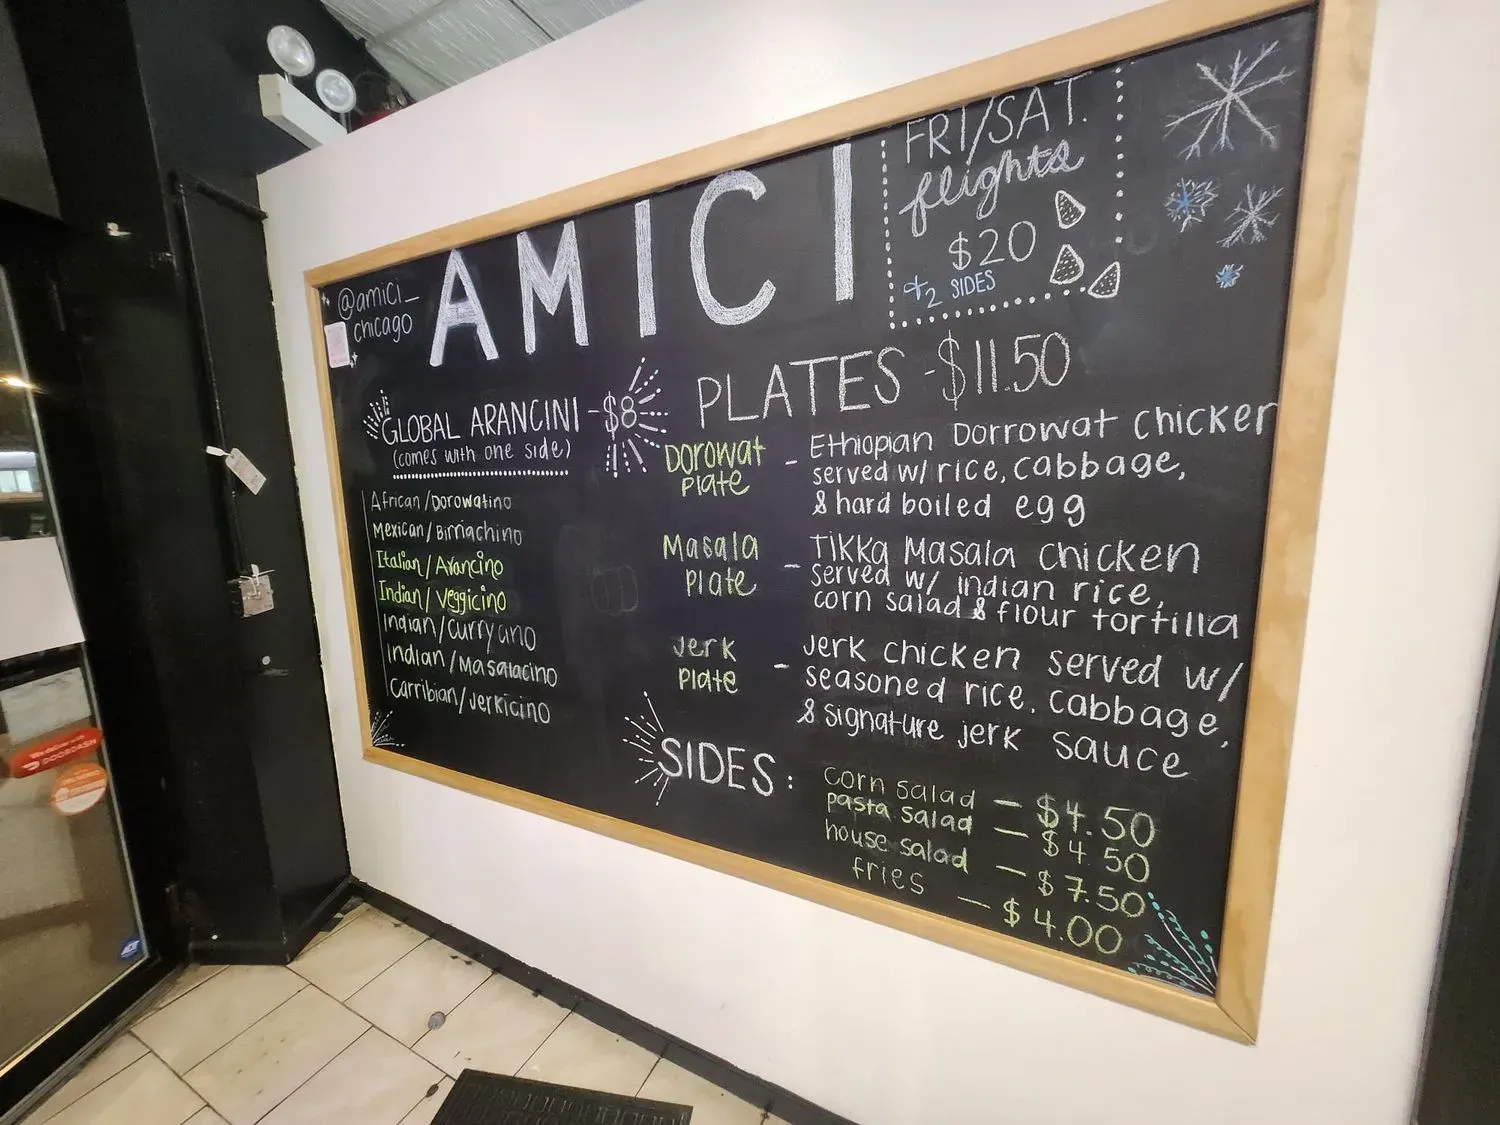 @amici_
chicago
AMICI
FRI/SAT.
flights
$20
+2 SIDES
GLOBAL ARANCINI - $8
(comes with one side)
African/Dorowatino
Mexican/Birriachino
Italian/Arancino
Indian/Veggicino
Indian/curryano
Indian/Masalacino
Carribian/Jerkicino
PLATES - $11.50
Dorowat
plate
- Ethiopian Dorrowat chicken
served w/ rice, cabbage,
& hard boiled egg
Masala
plate
- Tikka Masala chicken
served w/ indian rice,
corn salad & flour tortilla
Jerk
plate
- Jerk chicken served w/
seasoned rice, cabbage,
& signature jerk sauce
SIDES:
corn salad - $4.50
pasta salad - $4.50
house salad - $7.50
fries - $4.00
DOORDASH